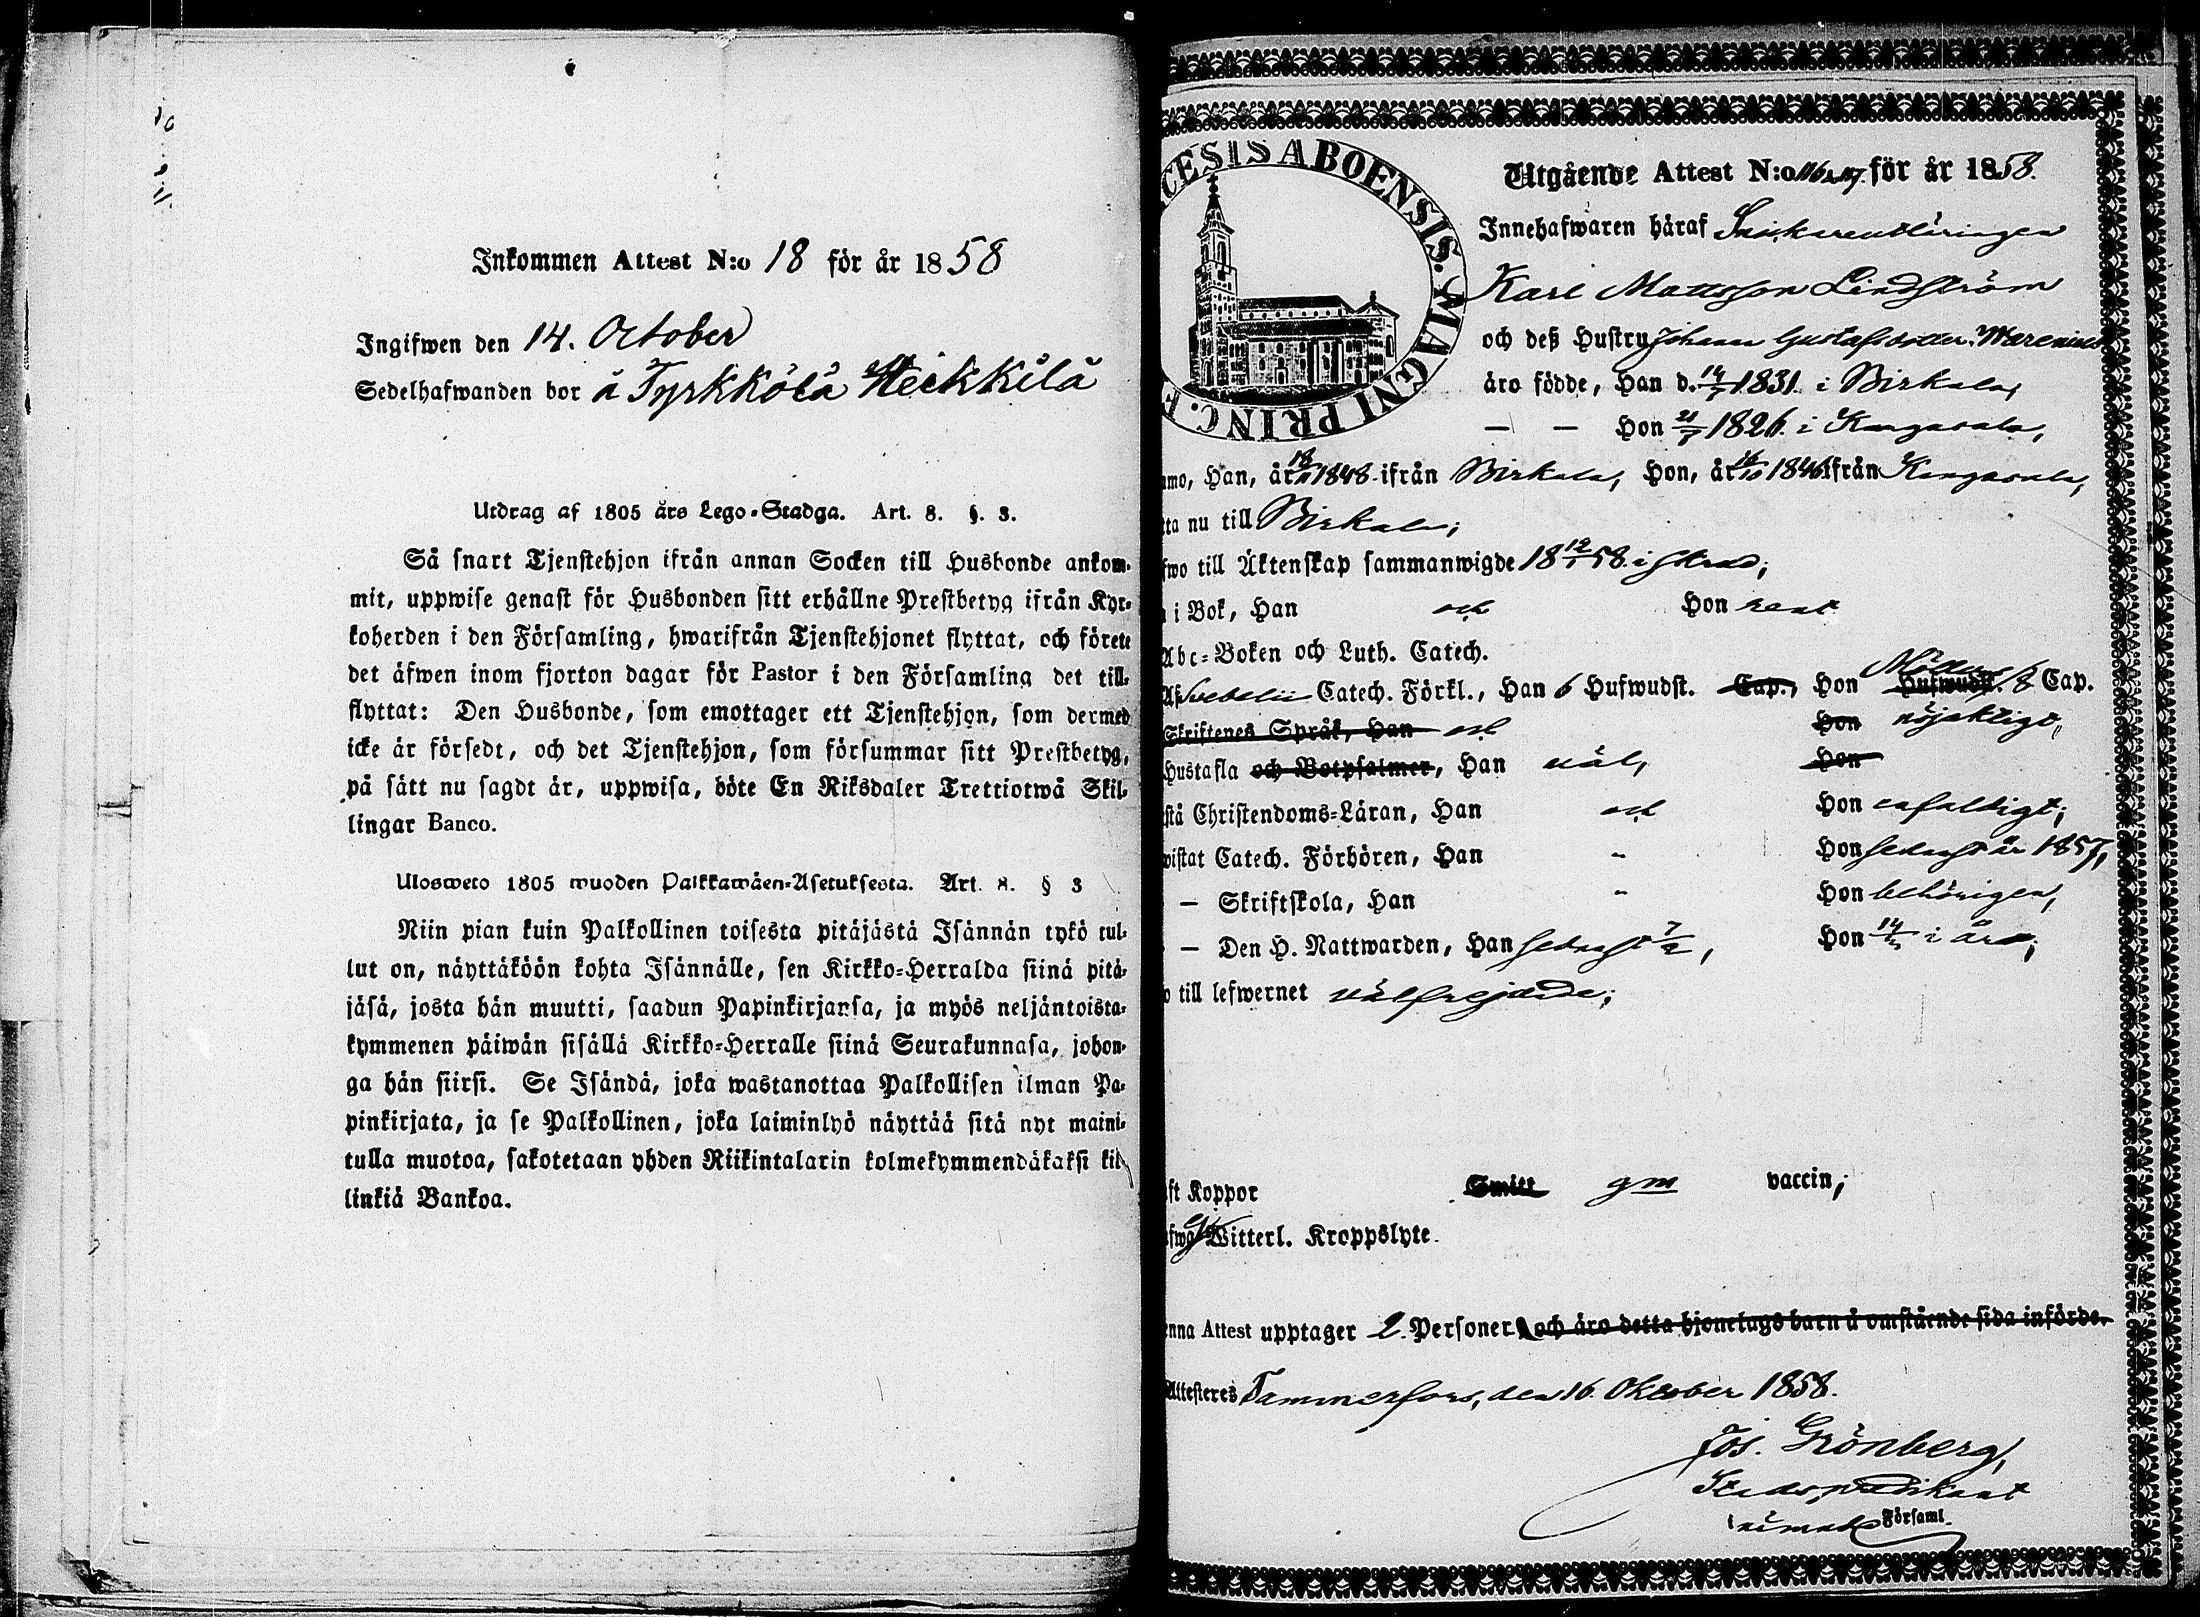 Inkommen Attest N:o 18 för år 1858
Ingifwen den 14. October
Sedelhafwanden bor å Tyrkkölä Heikkilä
Utdrag af 1805 års Lego-Stadga. Art. 8. §. 3.
Så snart Tjenstehjon ifrån annan Socken till Husbonde ankom-
mit, uppwise genast för Husbonden sitt erhållne Prestbetyg ifrån Kyr-
koherden i den Församling, hwarifrån Tjenstehjonet flyttat, och förete
det äfwen inom fjorton dagar för Pastor i den Församling det till-
flyttat: Den Husbonde, som emottager ett Tjenstehjon, som dermed
icke är försedt, och det Tjenstehjon, som försummar sitt Prestbetyg,
på sätt nu sagdt är, uppwisa, böte En Riksdaler Trettiotwå Skil-
lingar Banco.
Ulosweto 1805 wuoden Palkkawäen-Asetuksesta. Art. 8. § 3
Niin pian kuin Palkollinen toisesta pitäjästä Isännän tykö tul-
lut on, näyttäköön kohta Isännälle, sen Kirkko-Herralda siinä pitä-
jäsä, josta hän muutti, saadun Papinkirjansa, ja myös neljäntoista-
kymmenen päiwän sisällä Kirkko-Herralle siinä Seurakunnasa, johon-
ga hän siirsi. Se Isändä, joka wastanottaa Palkollisen ilman Pa-
pinkirjata, ja se Palkollinen, joka laiminlyö näyttää sitä nyt maini-
tulla muotoa, sakotetaan yhden Riikintalarin kolmekymmendäkaksi kil-
linkiä Bankoa.
CESIS ABOENSIS. MAGNI PRINC. F
Utgående Attest N:o 116 117 för år 1858.
Innehafwaren häraf Snickareutläringen
Karl Mattsson Lindström
och deß Hustru Johanna Gustafsdotter Warenius
äro födde, Han d. 14/7 1831. i Birkala,
— — Hon 21/7 1826. i Kangasala,
mo, Han, år 18/11 1848. ifrån Birkala, Hon, år 1846 ifrån Kangasala,
ta nu till Birkala;
fwo till Äktenskap sammanwigde 18 12/7 58. i Stad;
i Bok, Han och Hon rent
Abc-Boken och Luth. Catech.
Af Svebelii Catech. Förkl., Han 6 Hufwudst. Cap., Hon Möllers Hufwudst. 8 Cap.
Skriftenes Språk, Han och Hon nöjaktigt,
Hustafla och Botpsalmer, Han väl, Hon
stå Christendoms-Läran, Han och Hon enfaldigt;
wistat Catech. Förhören, Han " Hon sednast år 1857,
— Skriftskola, Han " Hon behörigen,
— Den H. Nattwarden, Han sednast Hon i år;
o till lefwernet välfrejdade;
ft Koppor Smitt gm vaccin;
fwa Ej Witterl. Kroppslyte.
enna Attest upptager 2. Personer och äro detta hjonelags barn å omstående sida införde.
Attesteres Tammerfors, den 16. Oktober 1858.
Jos. Grönberg,
Stadspredikant
Församl.